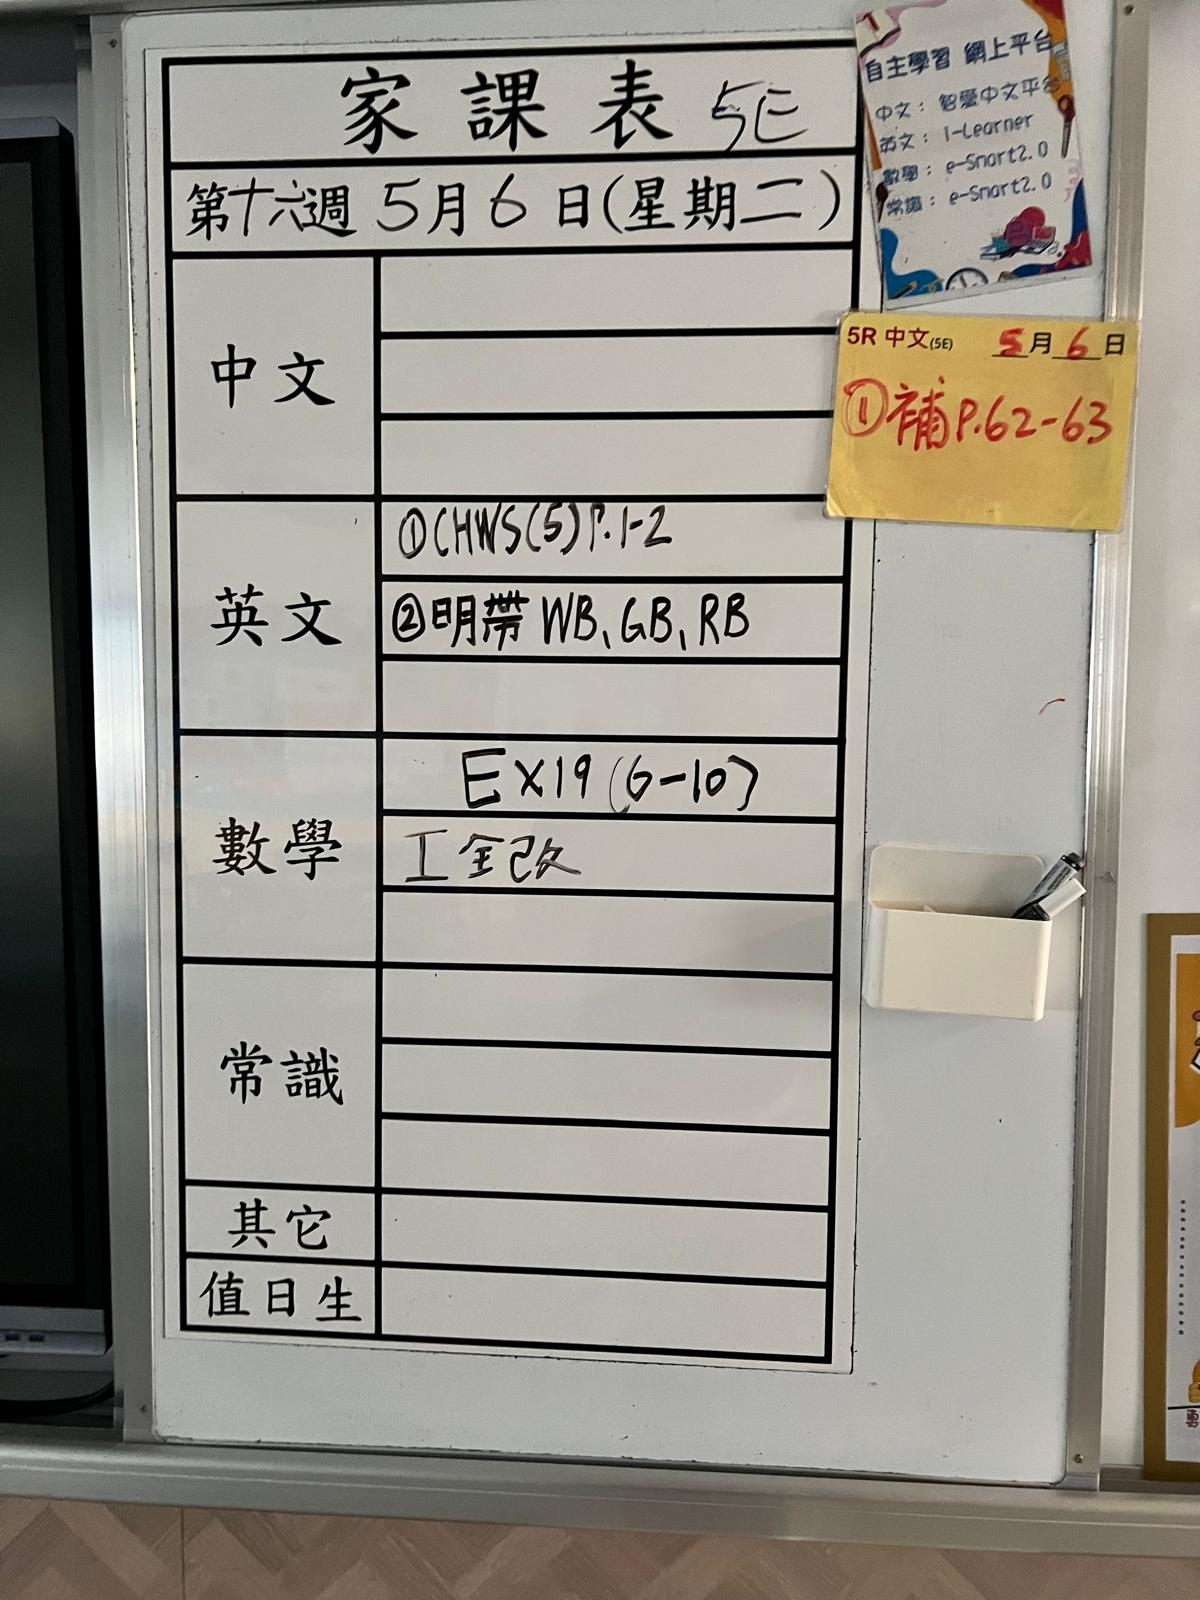 家課表 5E
第十六週 5月6日(星期二)
中文
英文
①CHWS(5)P.1-2
②明帶 WB, GB, RB
數學
EX19(6-10)
工全改
常識
其它
值日生
1
自主學習 網上平台
中文：智愛中文平台
英文：I-Learner
數學：e-Smart2.0
常識：e-Smart2.0
5R 中文(5E) 5月6日
①補P.62-63